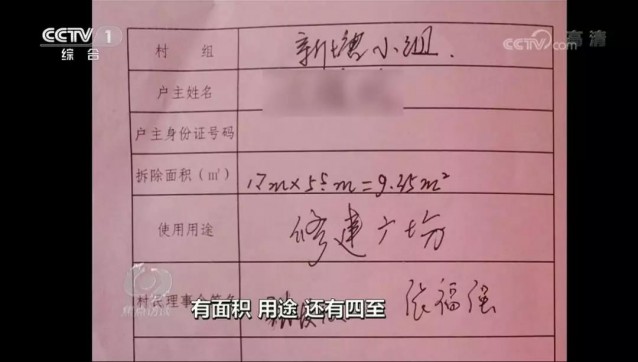 CCTV 1
综合
CCTV.com 高清
村 组
小组.
户主姓名
户主身份证号码
拆除面积(㎡) 1.7m×5.5m=9.35m²
使用用途 修建广场
村民理事会签名 张福强
焦点访谈
有面积 用途 还有四至